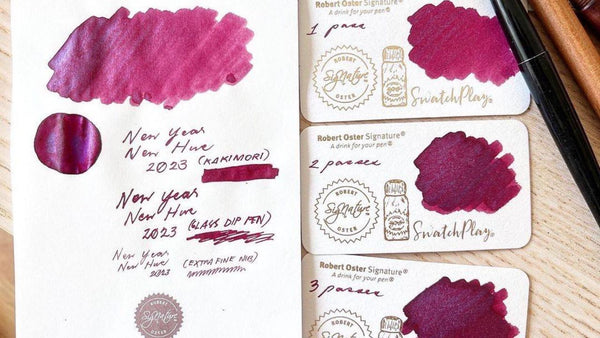 New Year
New Hue
2023 (KAKIMORI)
New Year
New Hue
2023 (GLASS DIP PEN)
New Year
New Hue (EXTRA FINE NIB)
2023
ROBERT
Signature
OSTER
Robert Oster Signature®
A drink for your pen®
1 pass
ROBERT
Signature
OSTER
SwatchPlay®
Robert Oster Signature®
A drink for your pen®
2 passes
ROBERT
Signature
OSTER
SwatchPlay®
Robert Oster Signature®
A drink for your pen®
3 passes
ROBERT
Signature